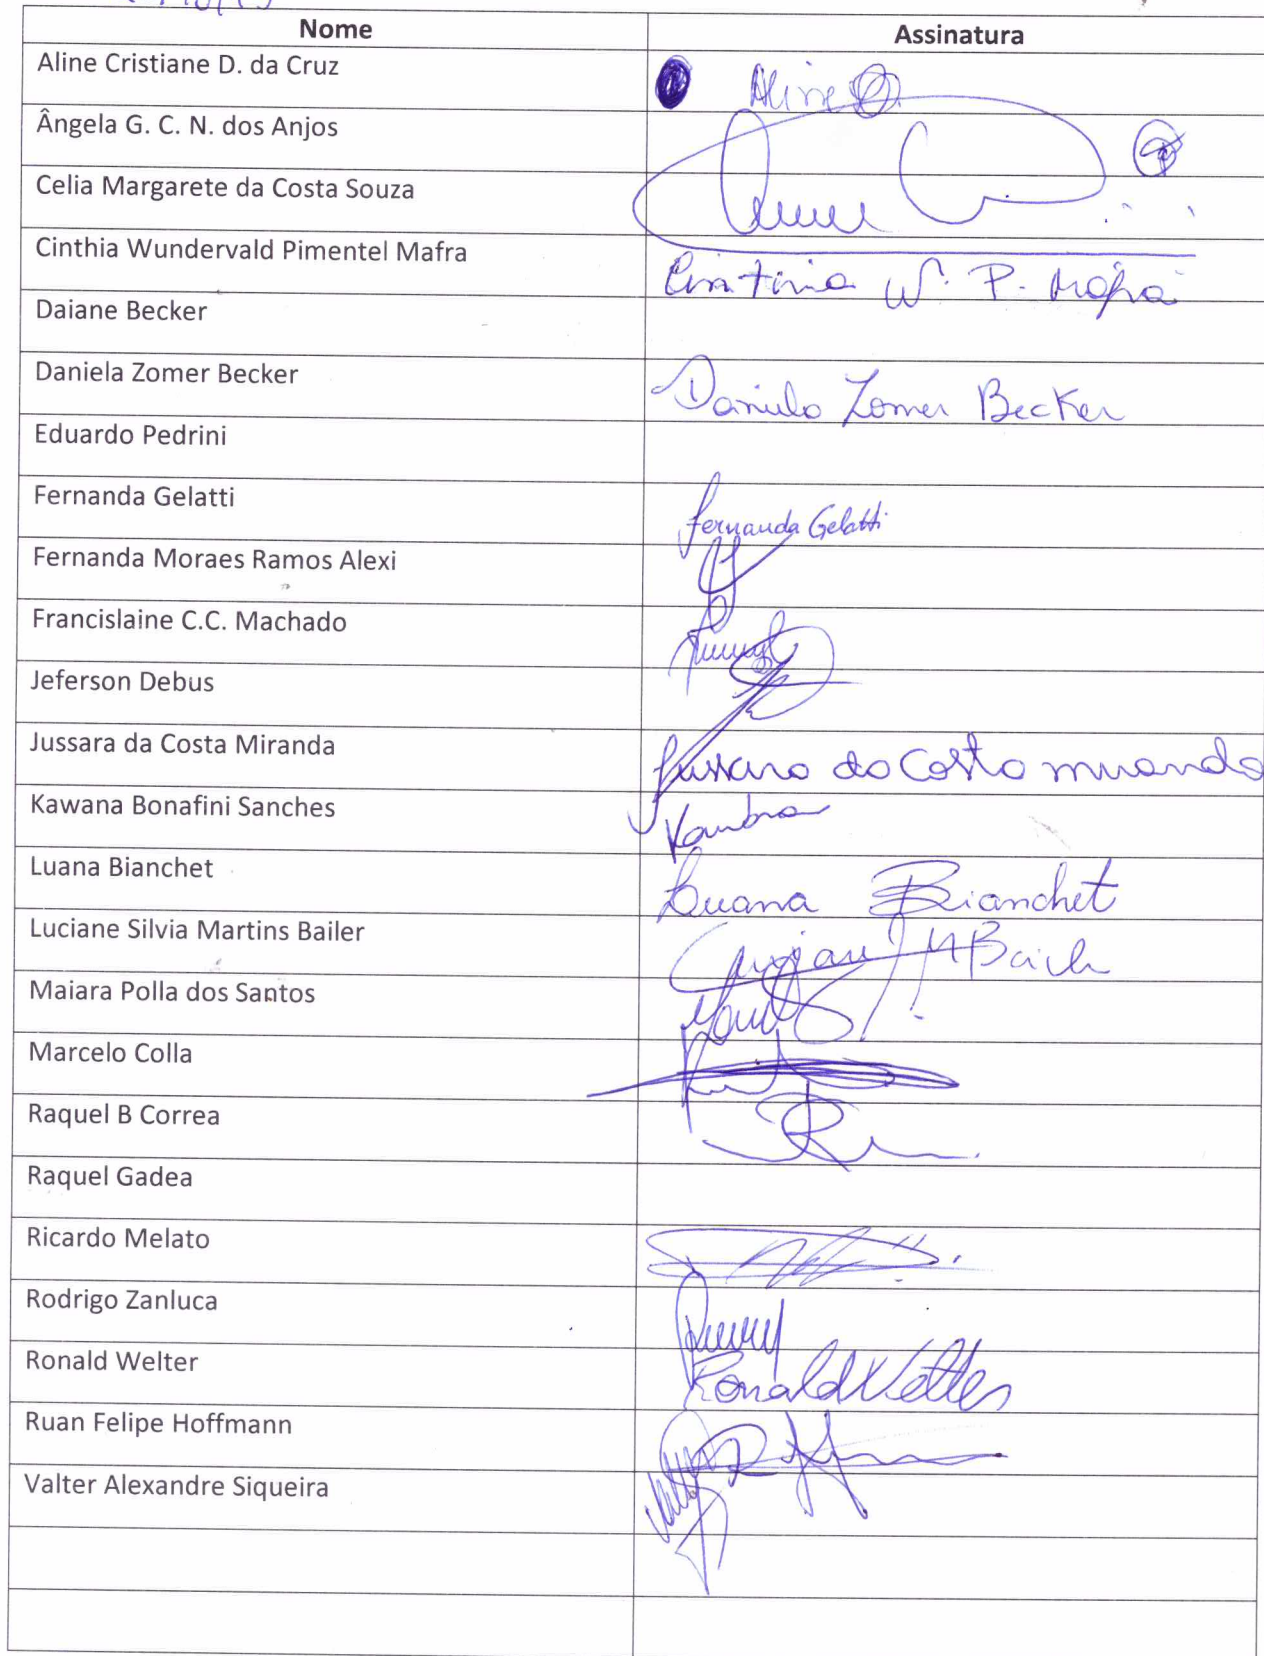 Nome Assinatura
Aline Cristiane D. da Cruz Aline
Ângela G. C. N. dos Anjos
Celia Margarete da Costa Souza
Cinthia Wundervald Pimentel Mafra Cinthia W. P. Mafra
Daiane Becker
Daniela Zomer Becker Daniela Zomer Becker
Eduardo Pedrini
Fernanda Gelatti Fernanda Gelatti
Fernanda Moraes Ramos Alexi
Francislaine C.C. Machado
Jeferson Debus
Jussara da Costa Miranda Jussara da Costa miranda
Kawana Bonafini Sanches
Luana Bianchet Luana Bianchet
Luciane Silvia Martins Bailer
Maiara Polla dos Santos
Marcelo Colla
Raquel B Correa
Raquel Gadea
Ricardo Melato
Rodrigo Zanluca
Ronald Welter Ronald Welter
Ruan Felipe Hoffmann
Valter Alexandre Siqueira